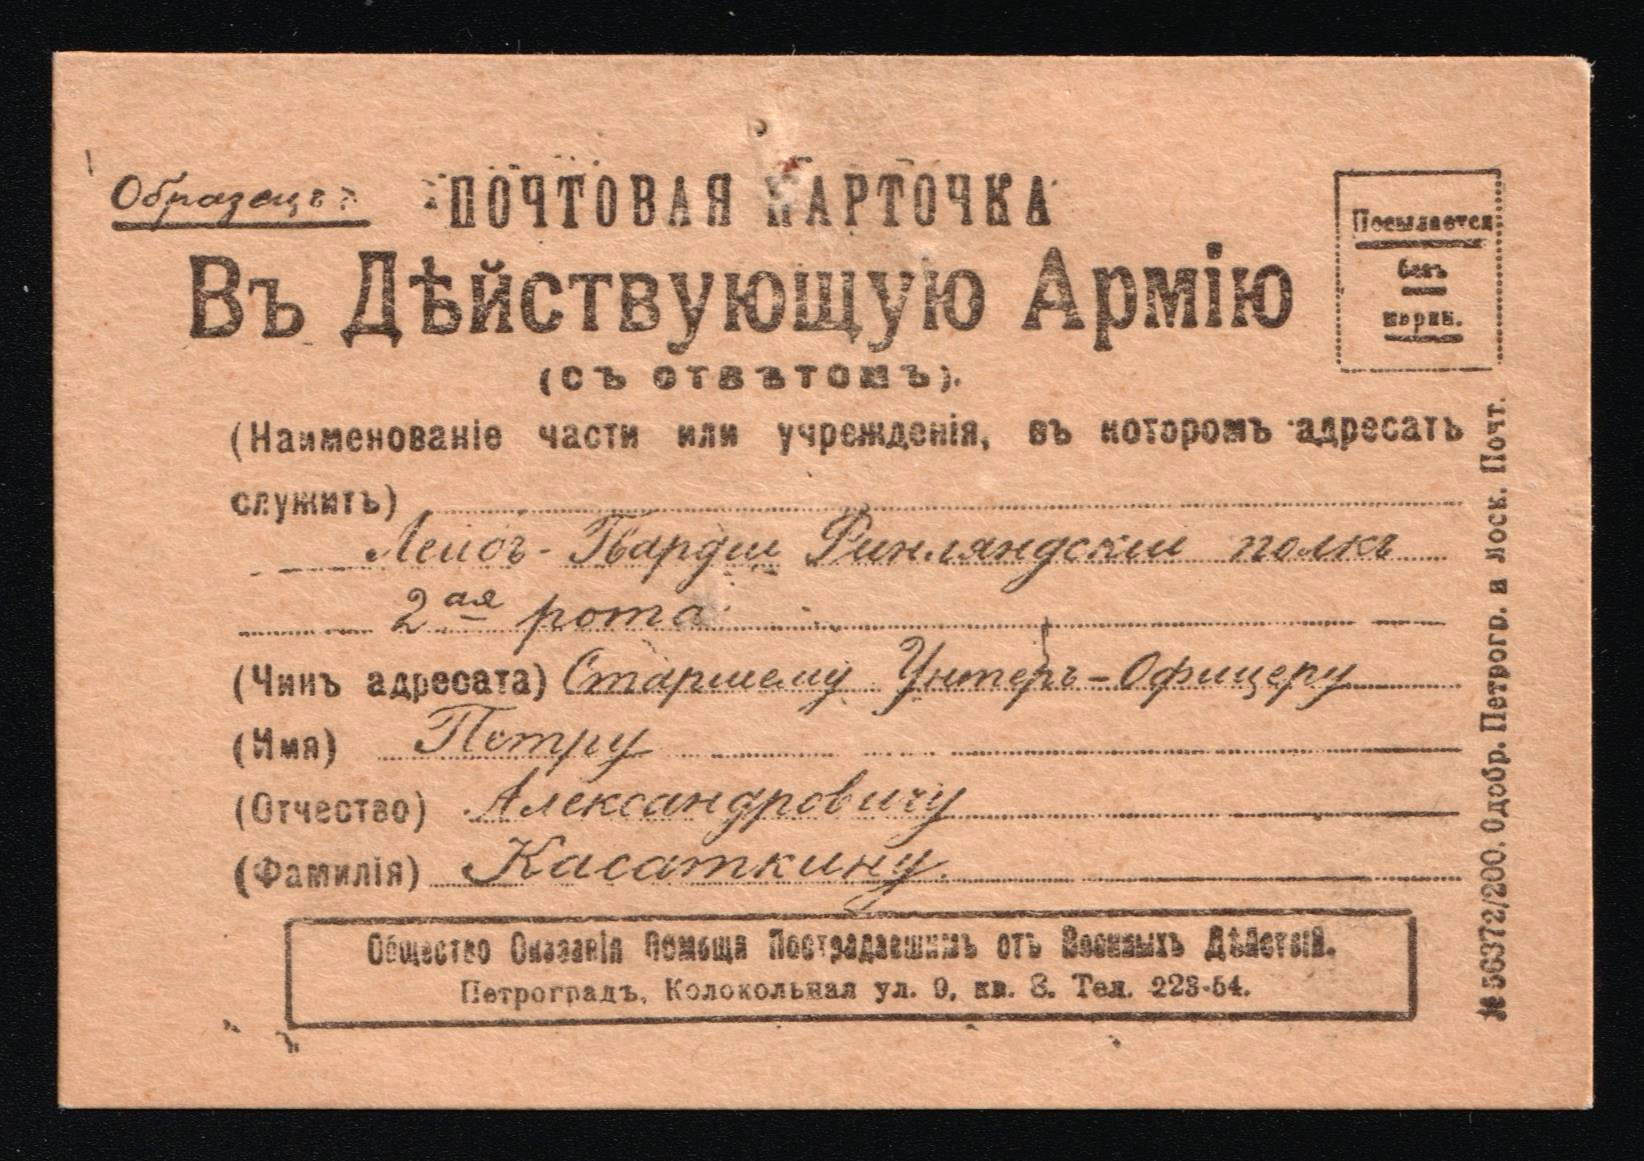 Образецъ
ПОЧТОВАЯ КАРТОЧКА
Въ Дѣйствующую Армію
(съ отвѣтомъ).
Посылается
безъ
марки.
(Наименованіе части или учрежденія, въ которомъ адресатъ
служитъ)
Лейбъ-Гвардіи Финляндскій полкъ
2ая рота
(Чинъ адресата) Старшему Унтеръ-Офицеру
(Имя) Петру
(Отчество) Александровичу
(Фамилія) Касаткину.
Общество Оказанія Помощи Пострадавшимъ отъ Военныхъ Дѣйствій.
Петроградъ, Колокольная ул. 9, кв. 8. Тел. 223-54.
№ 56372/200. Одобр. Петрогр. и Моск. Почт.